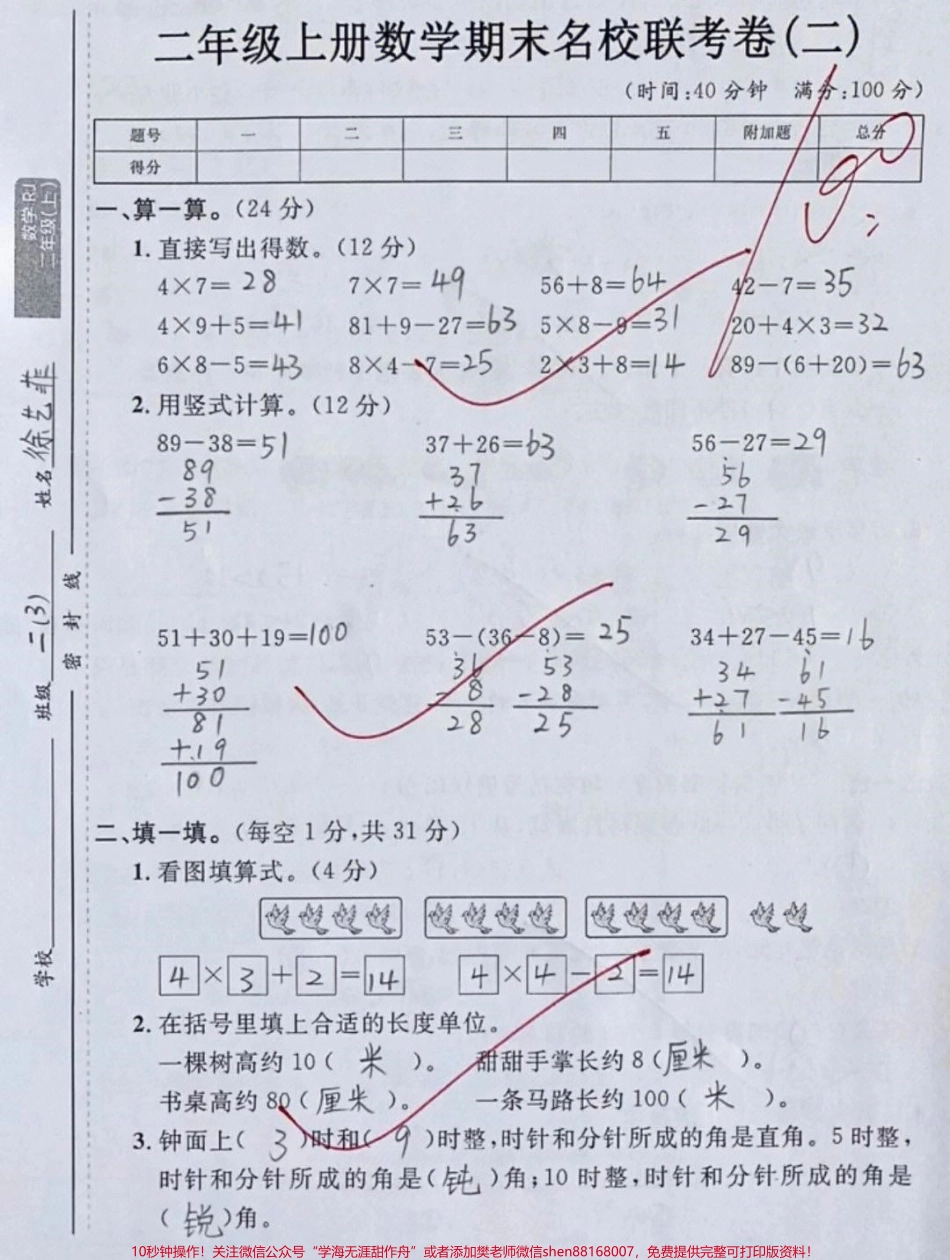 二年级上册数学期末名校联考卷(二)
(时间:40分钟 满分:100分)
题号 一 二 三 四 五 附加题 总分
得分
100
数学 RJ
二年级(上)
学校
班级 二(3)
姓名 徐艺菲
密 封 线
一、算一算。(24分)
1.直接写出得数。(12分)
4×7=28 7×7=49 56+8=64 42-7=35
4×9+5=41 81+9-27=63 5×8-9=31 20+4×3=32
6×8-5=43 8×4-7=25 2×3+8=14 89-(6+20)=63
2.用竖式计算。(12分)
89-38=51 37+26=63 56-27=29
89 37 56
-38 +26 -27
51 63 29
51+30+19=100 53-(36-8)=25 34+27-45=16
51 36 53 34 61
+30 -8 -28 +27 -45
81 28 25 61 16
+19
100
二、填一填。(每空1分,共31分)
1.看图填算式。(4分)
4×3+2=14 4×4-2=14
2.在括号里填上合适的长度单位。
一棵树高约10(米)。 甜甜手掌长约8(厘米)。
书桌高约80(厘米)。 一条马路长约100(米)。
3.钟面上(3)时和(9)时整,时针和分针所成的角是直角。5时整,
时针和分针所成的角是(钝)角;10时整,时针和分针所成的角是
(锐)角。
10秒钟操作！关注微信公众号“学海无涯甜作舟”或者添加樊老师微信shen88168007，免费提供完整可打印版资料！